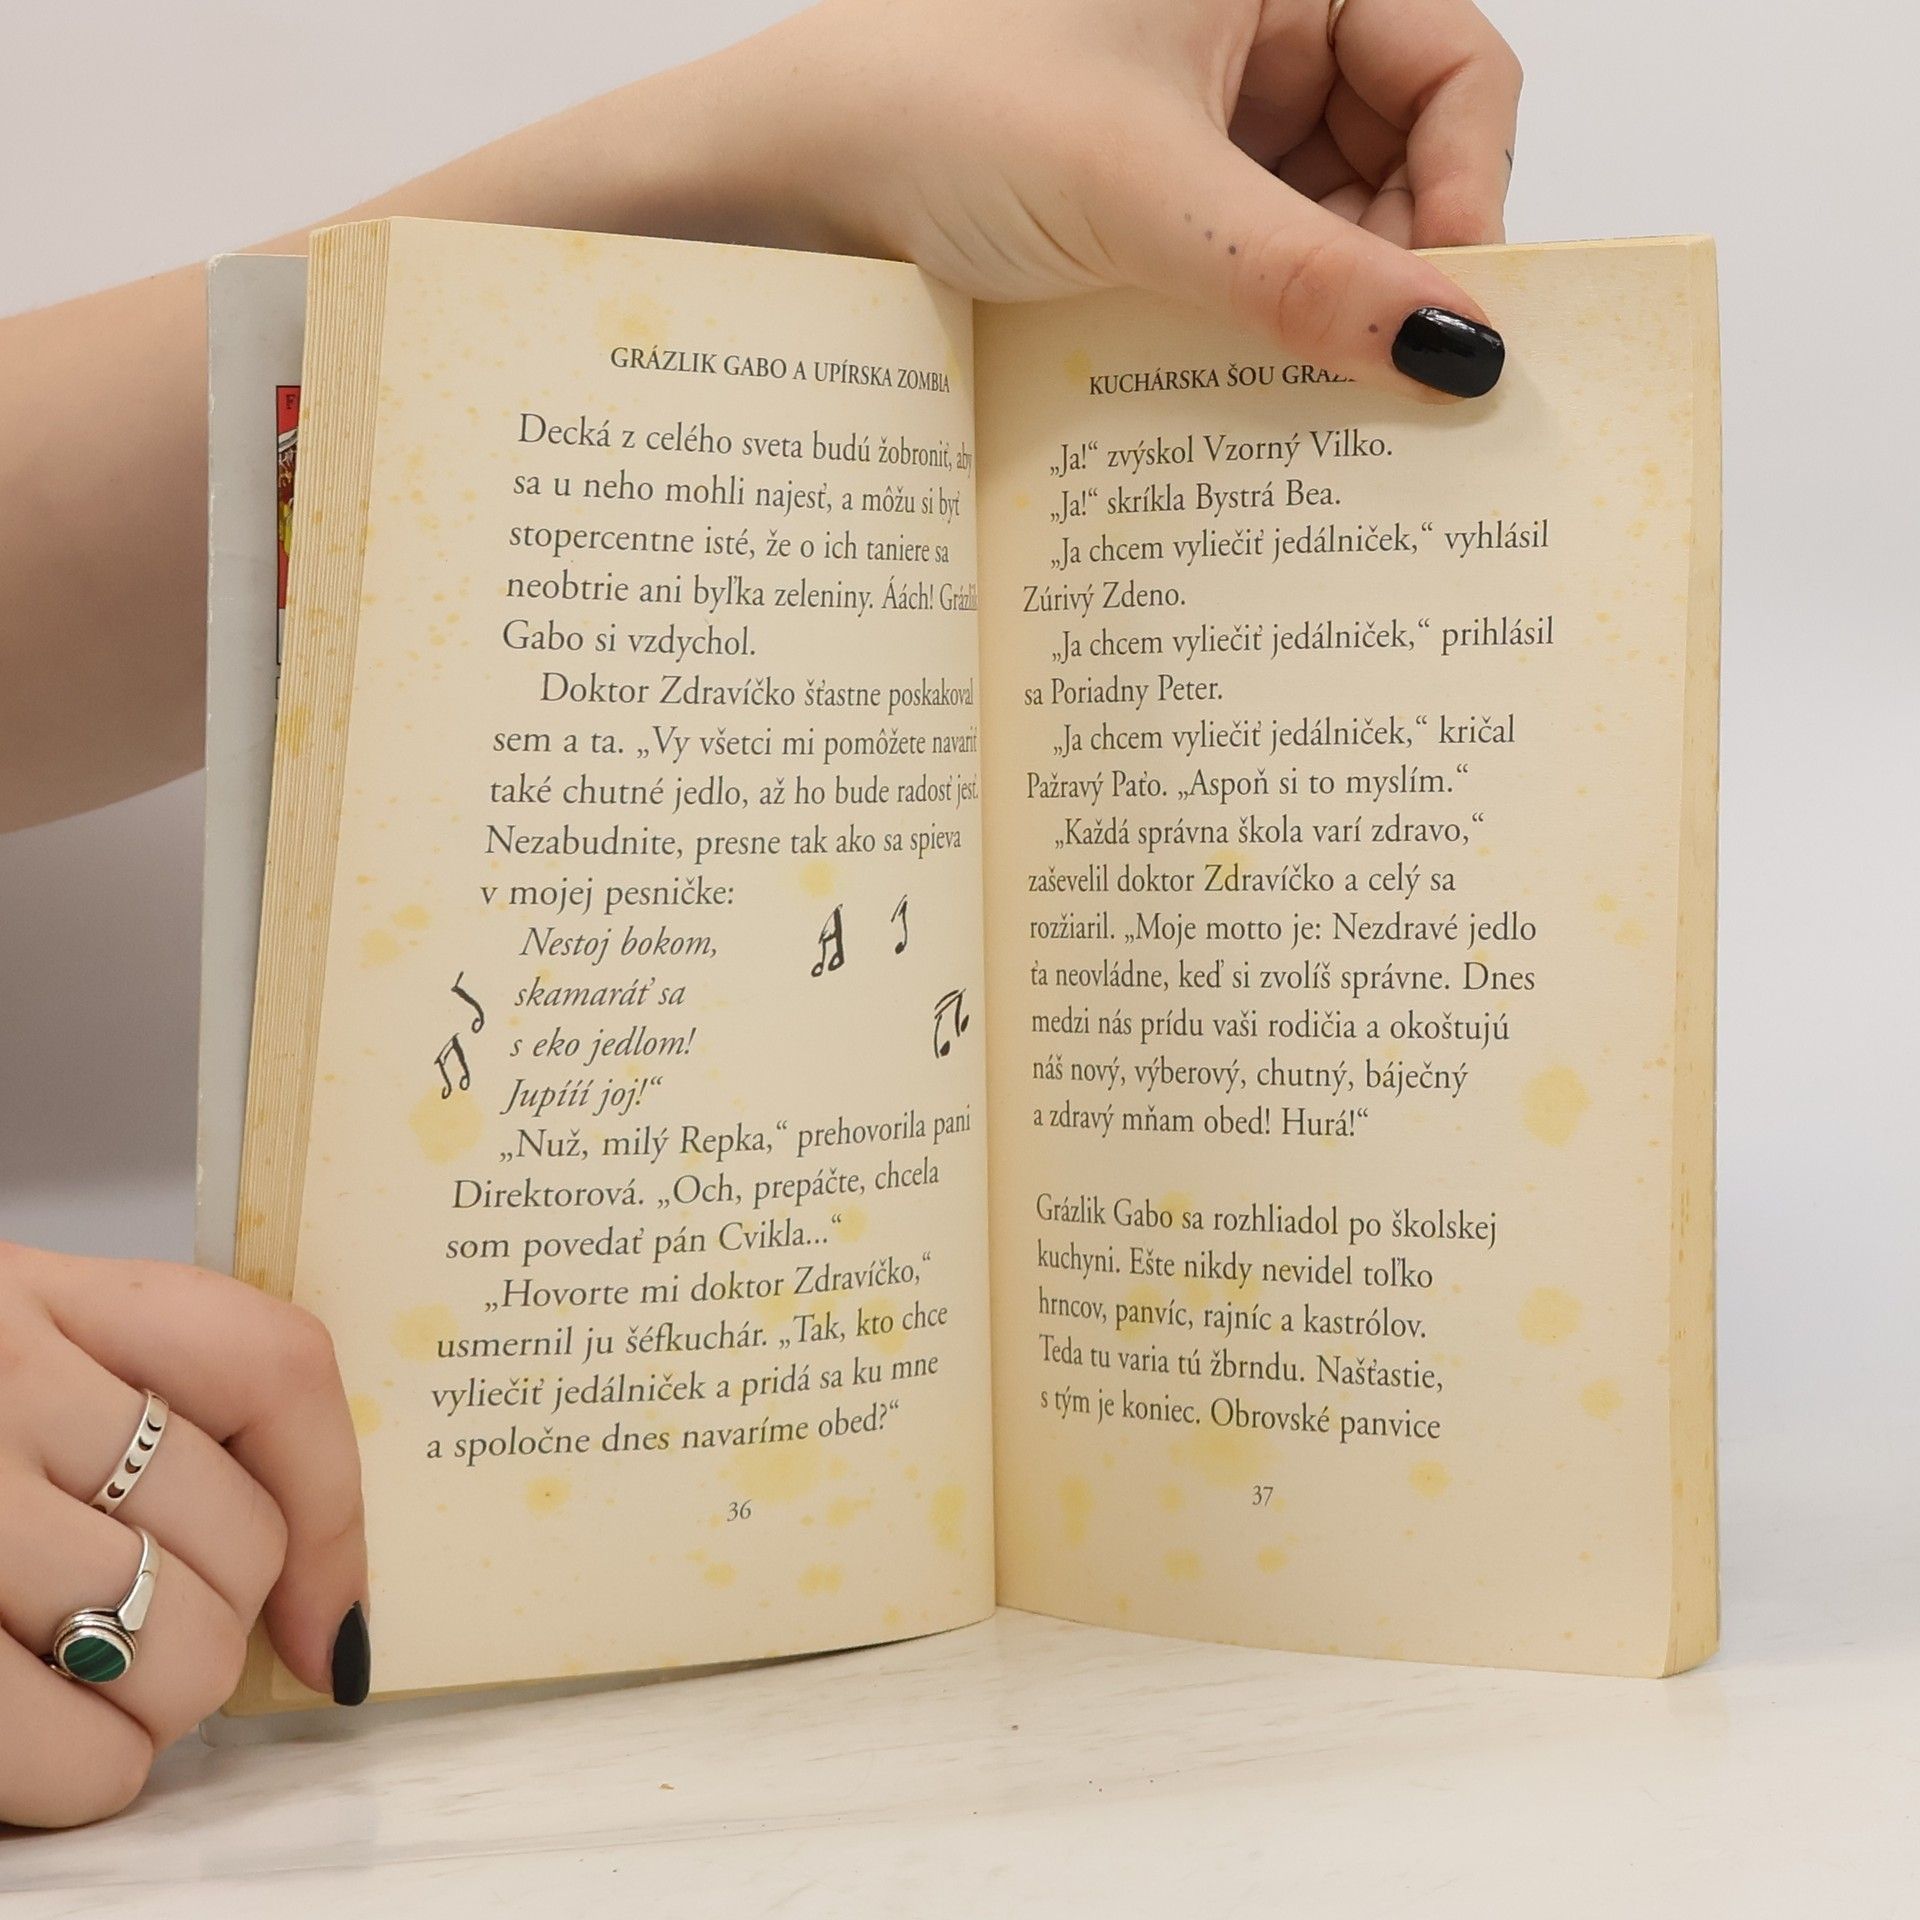 GRÁZLIK GABO A UPÍRSKA ZOMBIA
Decká z celého sveta budú žobroniť, aby
sa u neho mohli najesť, a môžu si byť
stopercentne isté, že o ich taniere sa
neobtrie ani byľka zeleniny. Áách! Grázlik
Gabo si vzdychol.
Doktor Zdravíčko šťastne poskakoval
sem a ta. „Vy všetci mi pomôžete navariť
také chutné jedlo, až ho bude radosť jesť.
Nezabudnite, presne tak ako sa spieva
v mojej pesničke:
Nestoj bokom,
skamaráť sa
s eko jedlom!
Jupííí joj!“
„Nuž, milý Repka,“ prehovorila pani
Direktorová. „Och, prepáčte, chcela
som povedať pán Cvikla...“
„Hovorte mi doktor Zdravíčko,“
usmernil ju šéfkuchár. „Tak, kto chce
vyliečiť jedálniček a pridá sa ku mne
a spoločne dnes navaríme obed?“
36
KUCHÁRSKA ŠOU
„Ja!“ zvýskol Vzorný Vilko.
„Ja!“ skríkla Bystrá Bea.
„Ja chcem vyliečiť jedálniček,“ vyhlásil
Zúrivý Zdeno.
„Ja chcem vyliečiť jedálniček,“ prihlásil
sa Poriadny Peter.
„Ja chcem vyliečiť jedálniček,“ kričal
Pažravý Paťo. „Aspoň si to myslím.“
„Každá správna škola varí zdravo,“
zaševelil doktor Zdravíčko a celý sa
rozžiaril. „Moje motto je: Nezdravé jedlo
ťa neovládne, keď si zvolíš správne. Dnes
medzi nás prídu vaši rodičia a okoštujú
náš nový, výberový, chutný, báječný
a zdravý mňam obed! Hurá!“
Grázlik Gabo sa rozhliadol po školskej
kuchyni. Ešte nikdy nevidel toľko
hrncov, panvíc, rajníc a kastrólov.
Teda tu varia tú žbrndu. Našťastie,
s tým je koniec. Obrovské panvice
37